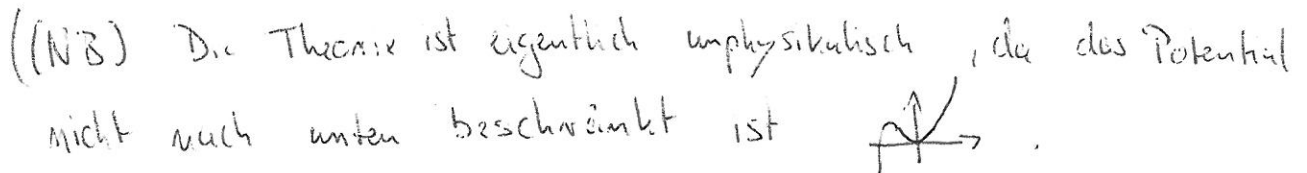 ((NB) Die Theorie ist eigentlich unphysikalisch, da das Potential
nicht nach unten beschränkt ist .